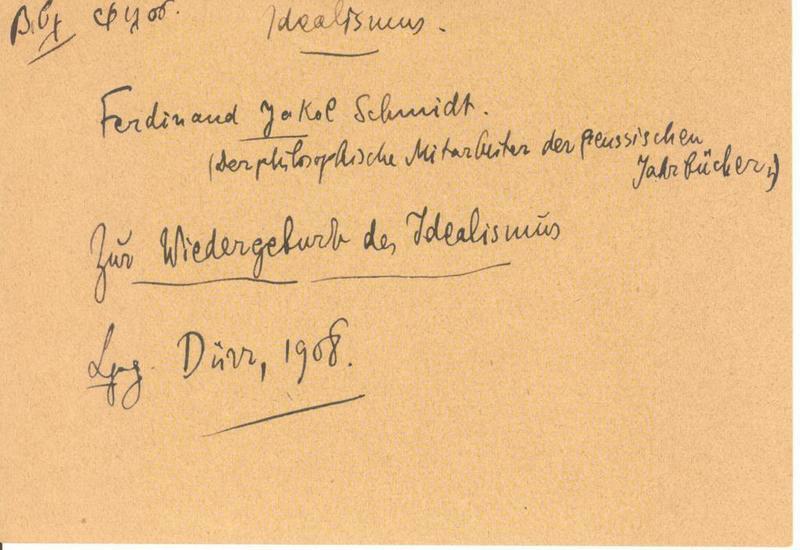 Idealismus.
Ferdinand Jakob Schmidt.
(der philosophische Mitarbeiter der preussischen
Jahrbücher,)
Zur Wiedergeburt des Idealismus
Lpzg. Dürr, 1908.